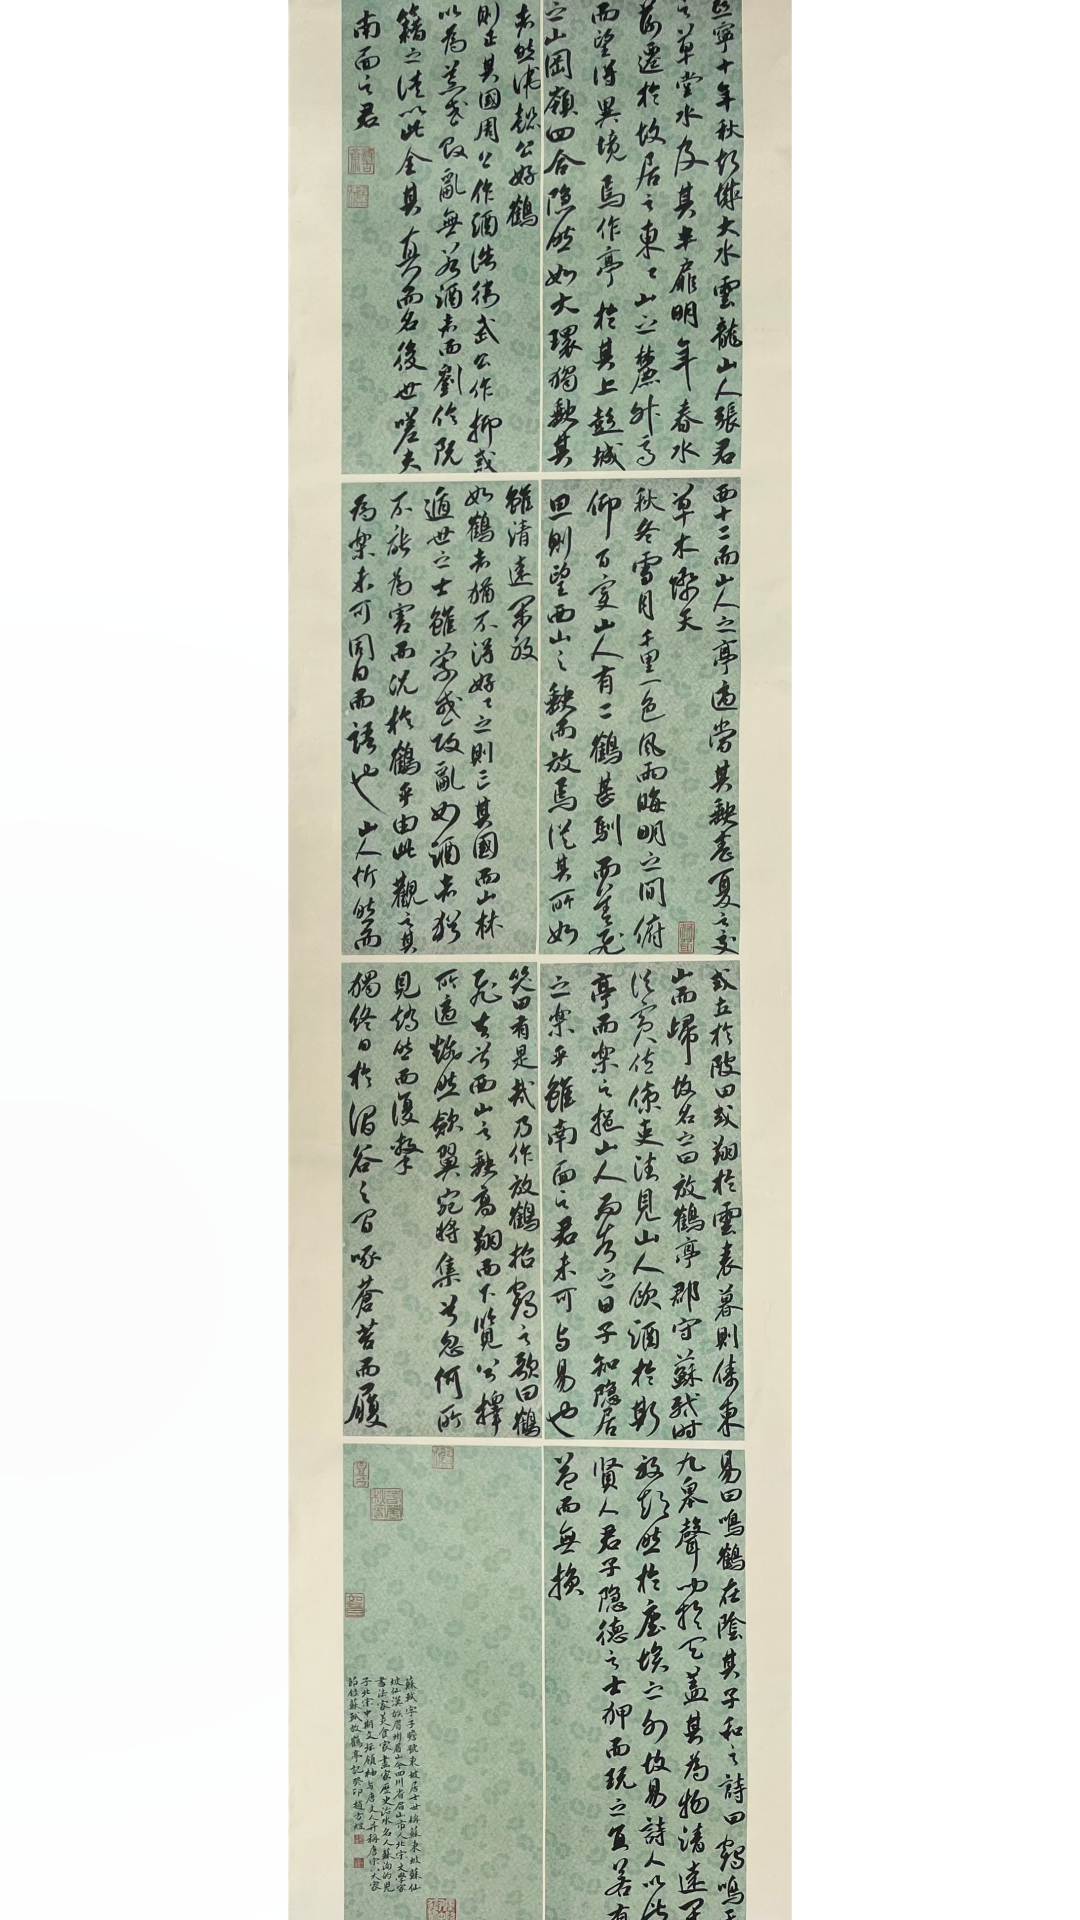 熙寧十年秋彭城大水雲龍山人張君
之草堂水及其半扉明年春水
落遷於故居之東々山之麓升高
而望得異境焉作亭於其上彭城
之山岡嶺四合隐然如大環獨缺其
西十二而山人之亭適當其缺春夏之交
草木際天
秋冬雪月千里一色風雨晦明之間俯
仰百變山人有二鶴甚馴而善飛
旦則望西山之缺而放焉從其所如
或立於陂田或翔於雲表暮則傃東
山而歸故名之曰放鶴亭郡守蘇軾時
從賓佐僚吏往見山人飲酒於斯
亭而樂之挹山人而告之曰子知隐居
之樂乎雖南面之君未可与易也
易曰鳴鶴在陰其子和之詩曰鶴鳴于
九皋聲聞於天蓋其為物清遠閒
放超然於塵埃之外故易詩人以比
賢人君子隐德之士狎而玩之宜若有
益而無損
者然衛懿公好鶴
則亡其國周公作酒誥衛武公作抑戒
以為荒惑敗亂無若酒者而劉伶阮
籍之徒以此全其真而名後世嗟夫
南面之君
雖清遠閒放
如鶴者猶不得好々之則亡其國而山林
遁世之士雖荒惑敗亂如酒者猶
不能為害而況於鶴乎由此觀之其
為樂未可同日而語也山人忻然而
笑曰有是哉乃作放鶴招鶴之歌曰鶴
飛去兮西山之缺高翔而下覽兮擇
所適翻然斂翼宛將集兮忽何所
見矯然而復擊
獨終日於澗谷之間啄蒼苔而履
蘇軾字子瞻號東坡居士世稱蘇東坡蘇仙
坡仙漢族眉州眉山今四川省眉山市人北宋文學家
書法家美食家畫家歷史治水名人蘇洵的兒
子北宋中期文壇領袖与唐文人并稱唐宋八大家
節錄蘇軾放鶴亭記癸卯趙吉煌